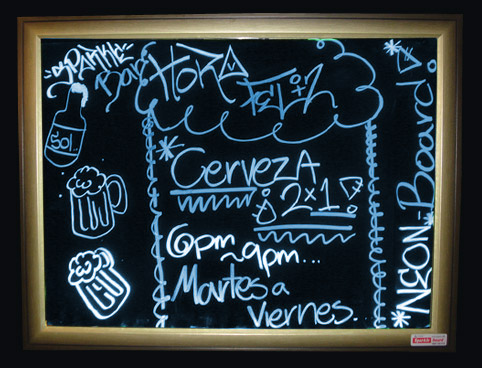 SPARKLE
Bar
HORA
FELiZ
SOL
*CERVEZA
2x1
6pm~9pm...
Martes a
viernes.
*NEON-Board!*
Sparkle Board